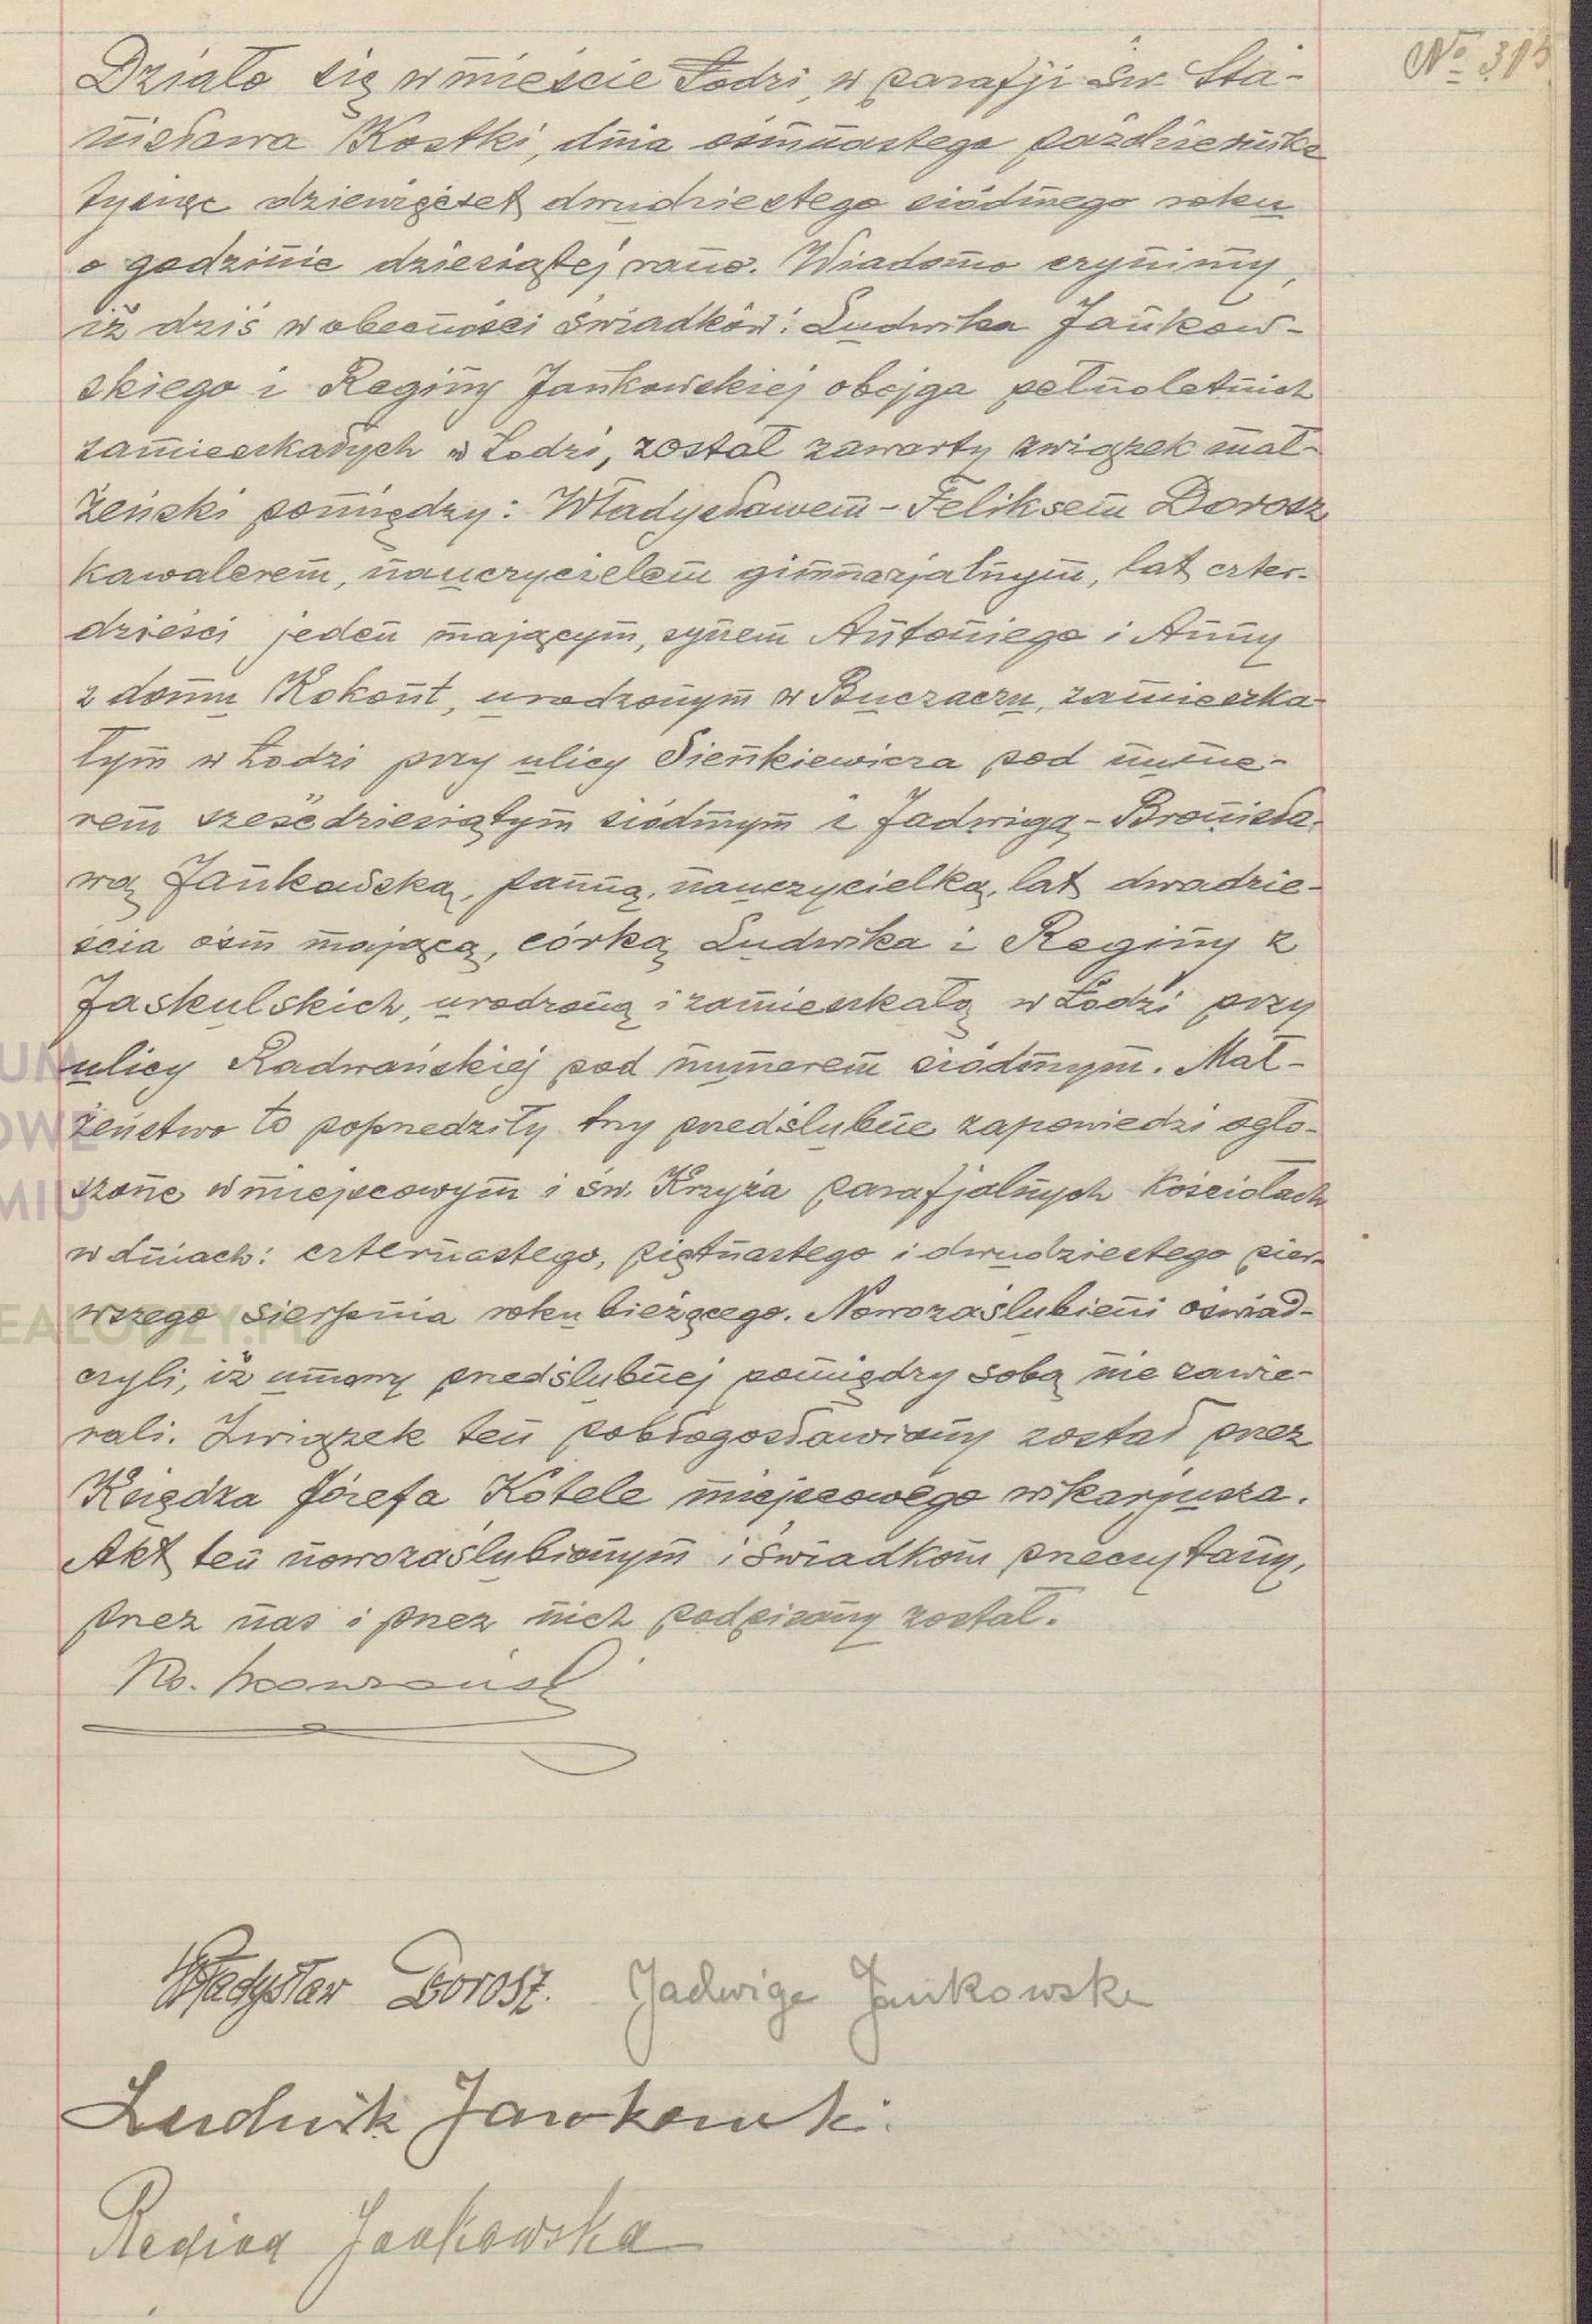 № 315
Działo się w mieście Łodzi, w parafji św. Sta-
nisława Kostki, dnia osmnastego października
tysiąc dziewięćset dwudziestego siódmego roku
o godzinie dziesiątej rano. Wiadomo czynimy,
iż dziś w obecności świadków: Ludwika Jankow-
skiego i Reginy Jankowskiej obojga pełnoletnich
zamieszkałych w Łodzi, został zawarty związek mał-
żeński pomiędzy: Władysławem-Feliksem Dorosz
kawalerem, nauczycielem gimnazjalnym, lat czter-
dzieści jeden mającym, synem Antoniego i Anny
z domu Kokont, urodzonym w Buczaczu, zamieszka-
łym w Łodzi przy ulicy Sienkiewicza pod nume-
rem sześćdziesiątym siódmym i Jadwigą-Bronisła-
wą Jankowską, panną, nauczycielką, lat dwadzie-
ścia ośm mającą, córką Ludwika i Reginy z
Jaskulskich, urodzoną i zamieszkałą w Łodzi przy
ulicy Radwańskiej pod numerem siódmym. Mał-
żeństwo to poprzedziły trzy przedślubne zapowiedzi ogło-
szone w miejscowym i św. Krzyża parafjalnych kościołach
w dniach: czternastego, piętnastego i dwudziestego pier-
wszego sierpnia roku bieżącego. Nowozaślubieni oświad-
czyli, iż umowy przedślubnej pomiędzy sobą nie zawie-
rali. Związek ten pobłogosławiony został przez
Księdza Józefa Kotele miejscowego wikarjusza.
Akt ten nowozaślubionym i świadkom przeczytany,
przez nas i przez nich podpisany został.
Ks.
Władysław Dorosz. Jadwiga Jankowska
Ludwik Jankowski.
Regina Jankowska